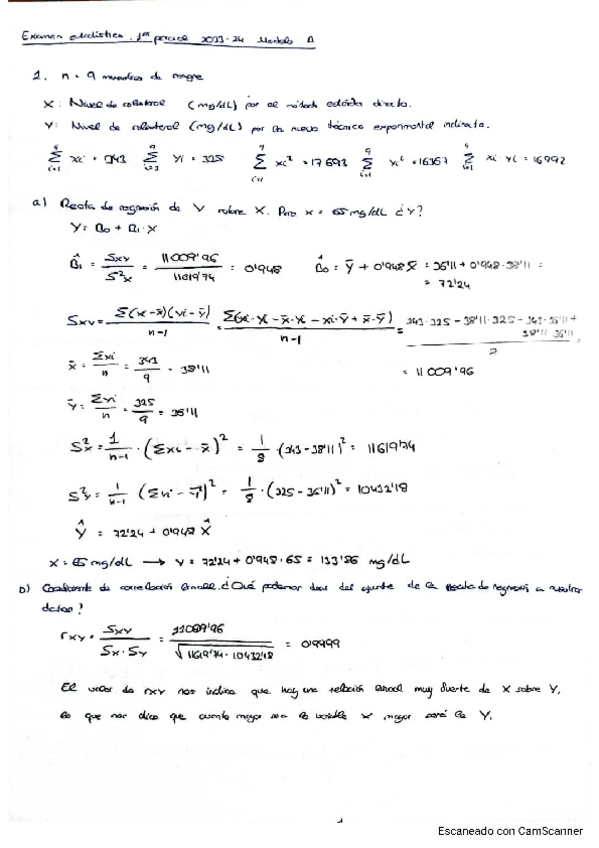 Examen estadística 1er parcial 2023-24 Modelo A
1. n = 9 muestras de sangre
X: Nivel de colesterol (mg/dL) por el método estándar directo.
Y: Nivel de colesterol (mg/dL) por la nueva técnica experimental indirecta.
Σ xi = 343 Σ yi = 325 Σ xi² = 17693 Σ yi² = 16367 Σ xi·yi = 16992
a) Recta de regresión de Y sobre X. Para x = 65 mg/dL ¿Y?
Y = B0 + B1·X
B̂1 = Sxy / S²x = 11009'96 / 11619'74 = 0'948 B̂0 = ȳ + 0'948 x̄ = 36'11 + 0'948·38'11 =
= 72'24
Sxy = Σ(xi-x̄)(yi-ȳ) / n-1 = Σ(xi·yi - x̄·yi - xi·ȳ + x̄·ȳ) / n-1 = 343·325 - 38'11·325 - 343·36'11 + 38'11·36'11
= 11009'96
x̄ = Σxi / n = 343 / 9 = 38'11
ȳ = Σyi / n = 325 / 9 = 36'11
S²x = 1 / n-1 · (Σxi - x̄)² = 1/8 · (343 - 38'11)² = 11619'74
S²y = 1 / n-1 (Σyi - ȳ)² = 1/8 · (325 - 36'11)² = 10432'18
Ŷ = 72'24 + 0'948 X̂
X = 65 mg/dL → Y = 72'24 + 0'948·65 = 133'86 mg/dL
b) Coeficiente de correlación lineal. ¿Qué podemos decir del ajuste de la recta de regresión a nuestros
datos?
rxy = Sxy / Sx·Sy = 11009'96 / √11619'74·10432'18 = 0'9999
El valor de rxy nos indica que hay una relación lineal muy fuerte de X sobre Y,
lo que nos dice que cuanto mayor sea la variable X mayor será la Y.
1
Escaneado con CamScanner